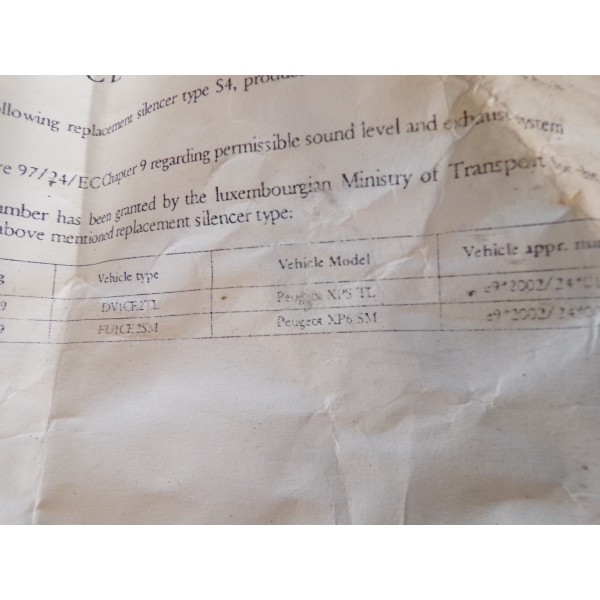 ollowing replacement silencer type S4,
e 97/24/EC Chapter 9 regarding permissible sound level and exhaust system
umber has been granted by the luxembourgian Ministry of Transport
above mentioned replacement silencer type:
Vehicle type Vehicle Model Vehicle appr.
9 Peugeot TL e9*2002/24*
9 Peugeot XP6 SM e9*2002/24*